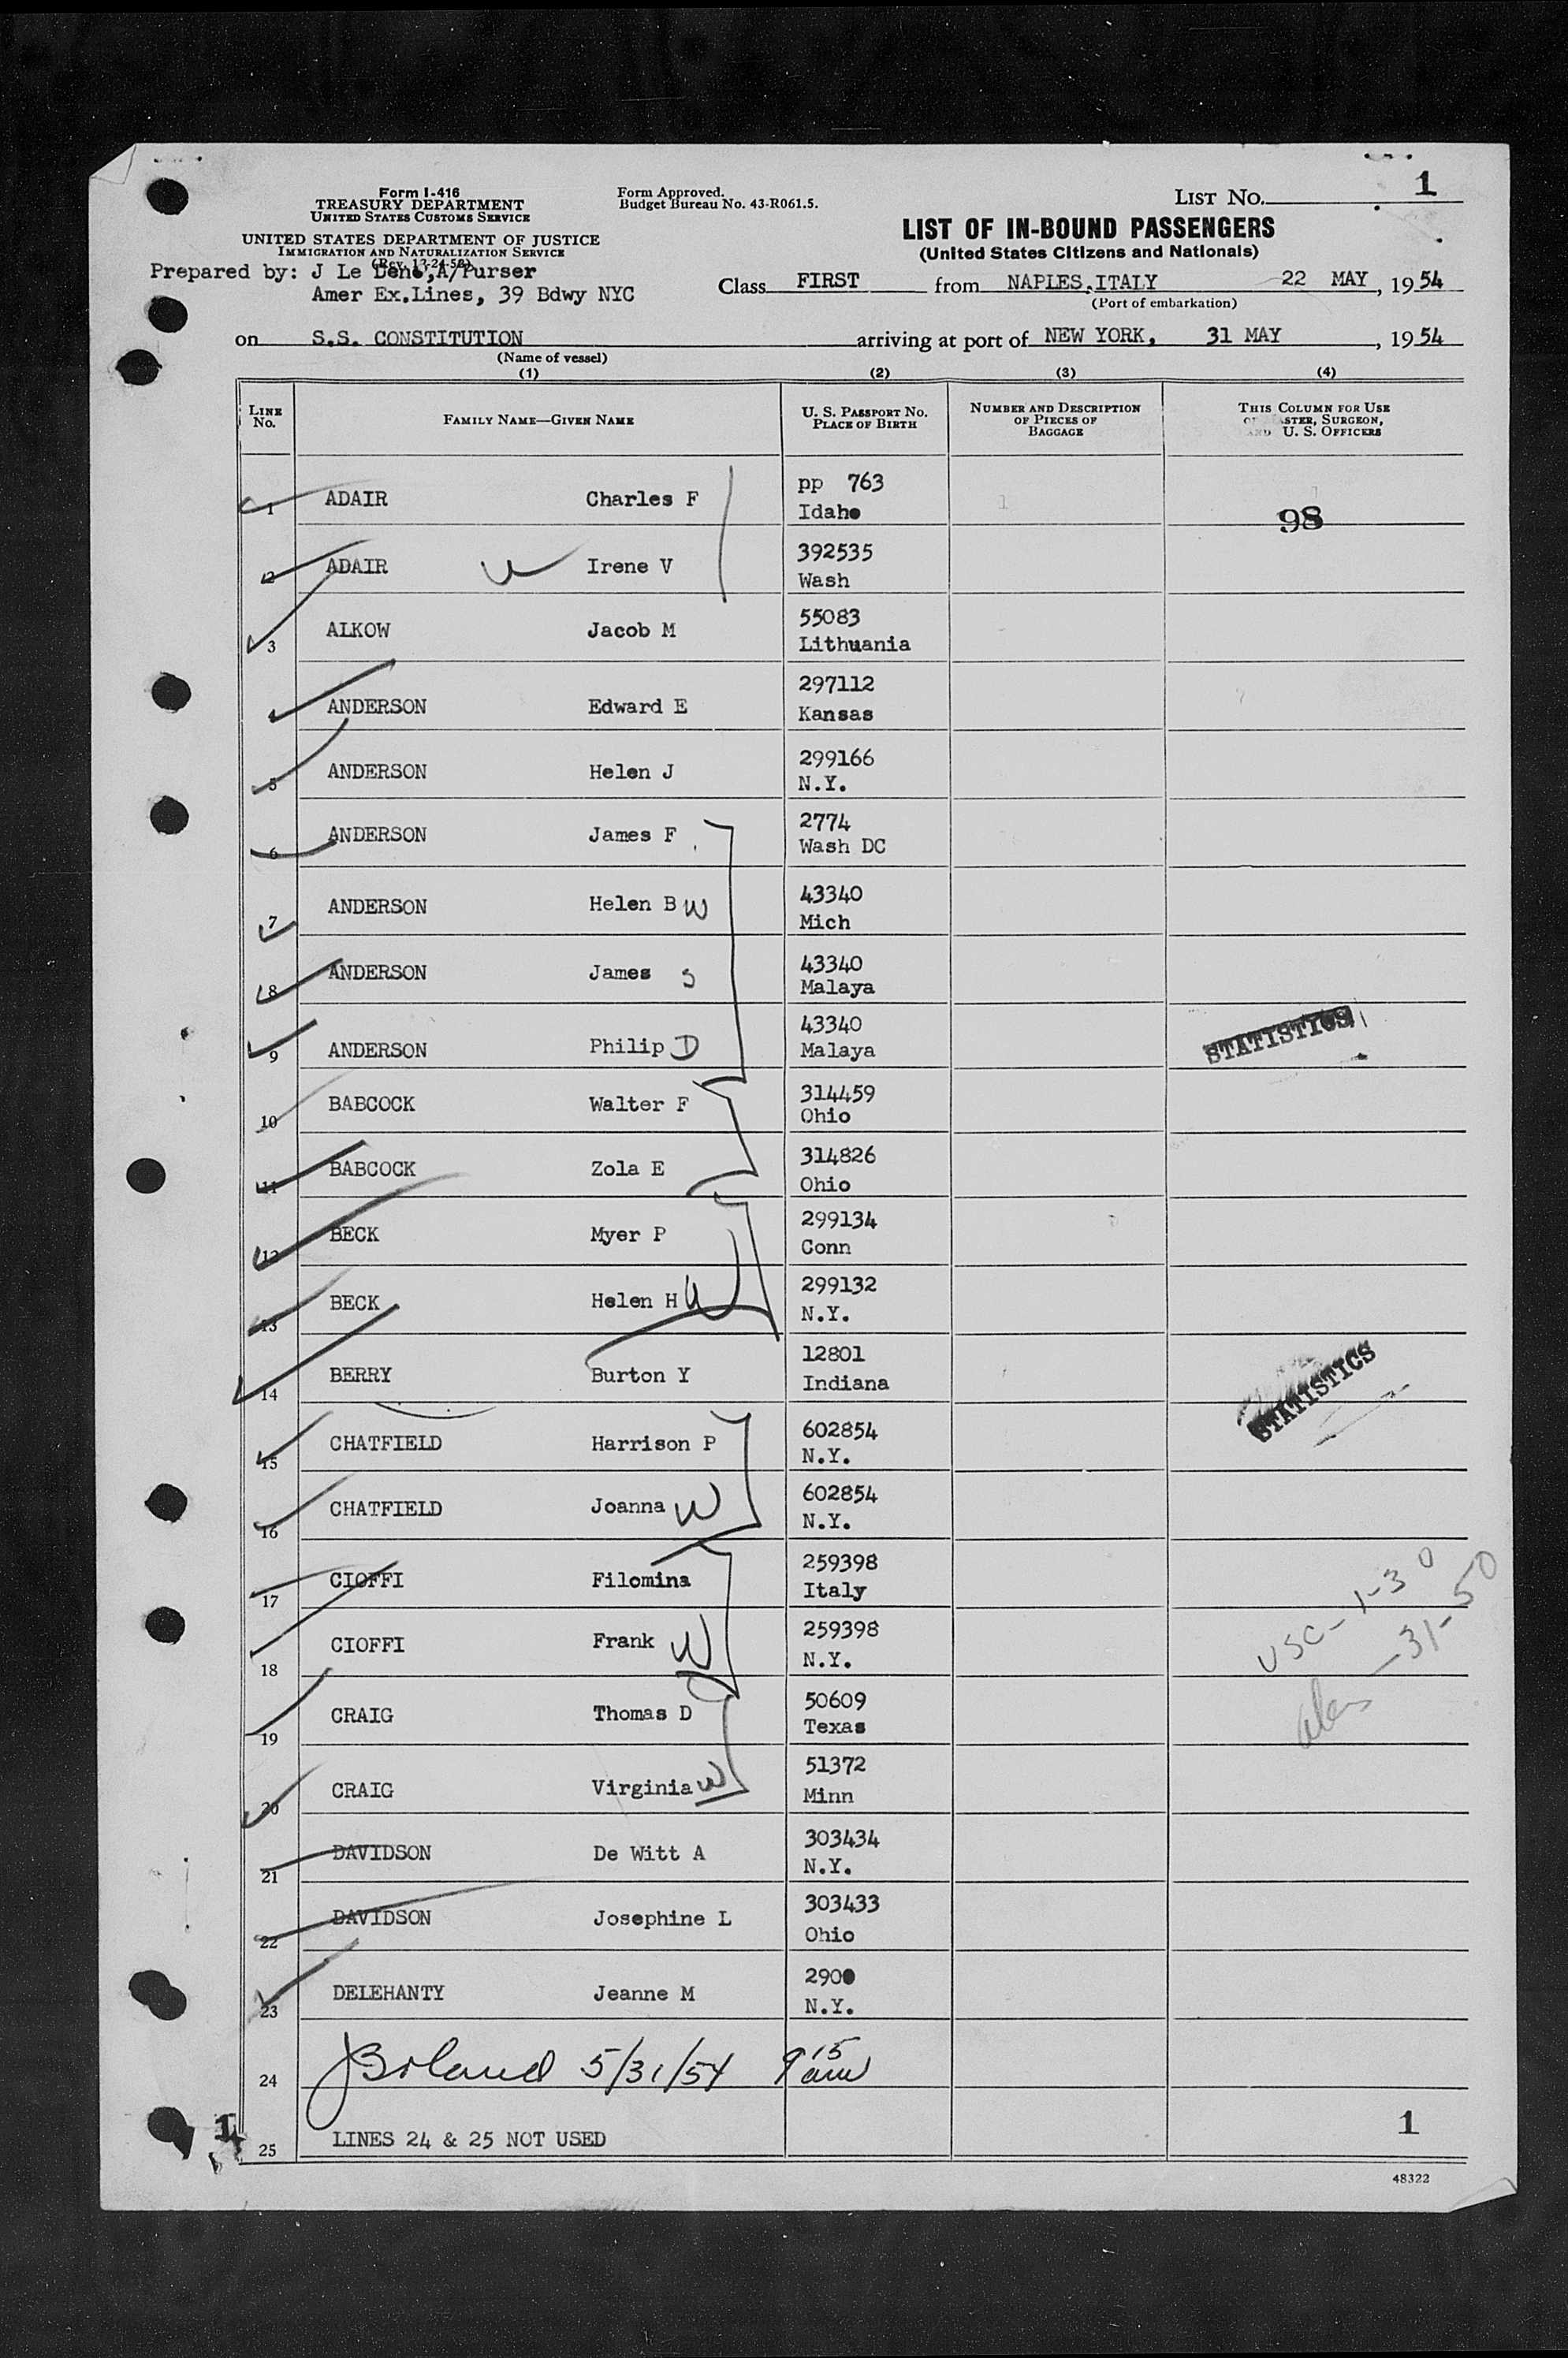 Form I-416
TREASURY DEPARTMENT
UNITED STATES CUSTOMS SERVICE
Form Approved.
Budget Bureau No. 43-R061.5.
LIST NO. 1
UNITED STATES DEPARTMENT OF JUSTICE
IMMIGRATION AND NATURALIZATION SERVICE
LIST OF IN-BOUND PASSENGERS
(United States Citizens and Nationals)
Prepared by: J Le Dene, A/Purser
Amer Ex.Lines, 39 Bdwy NYC
Class FIRST from NAPLES, ITALY 22 MAY, 1954
(Port of embarkation)
on S.S. CONSTITUTION arriving at port of NEW YORK, 31 MAY, 1954
(Name of vessel)
(1) (2) (3) (4)
LINE No. FAMILY NAME—GIVEN NAME U. S. PASSPORT NO. PLACE OF BIRTH NUMBER AND DESCRIPTION OF PIECES OF BAGGAGE THIS COLUMN FOR USE OF MASTER, SURGEON, AND U. S. OFFICERS
1 ADAIR Charles F pp 763
Idaho 98
2 ADAIR W Irene V 392535
Wash
3 ALKOW Jacob M 55083
Lithuania
ANDERSON Edward E 297112
Kansas
5 ANDERSON Helen J 299166
N.Y.
6 ANDERSON James F 2774
Wash DC
7 ANDERSON Helen B W 43340
Mich
8 ANDERSON James S 43340
Malaya
9 ANDERSON Philip D 43340
Malaya STATISTICS
10 BABCOCK Walter F 314459
Ohio
11 BABCOCK Zola E 314826
Ohio
12 BECK Myer P 299134
Conn
13 BECK Helen H W 299132
N.Y.
14 BERRY Burton Y 12801
Indiana STATISTICS
15 CHATFIELD Harrison P 602854
N.Y.
16 CHATFIELD Joanna W 602854
N.Y.
17 CIOFFI Filomina 259398
Italy
18 CIOFFI Frank W 259398
N.Y. USC - 1-30
19 CRAIG Thomas D 50609
Texas - 31-50
20 CRAIG Virginia W 51372
Minn
21 DAVIDSON De Witt A 303434
N.Y.
22 DAVIDSON Josephine L 303433
Ohio
23 DELEHANTY Jeanne M 2900
N.Y.
24 JBoland 5/31/54 9 15 am
25 LINES 24 & 25 NOT USED
1 1
48322